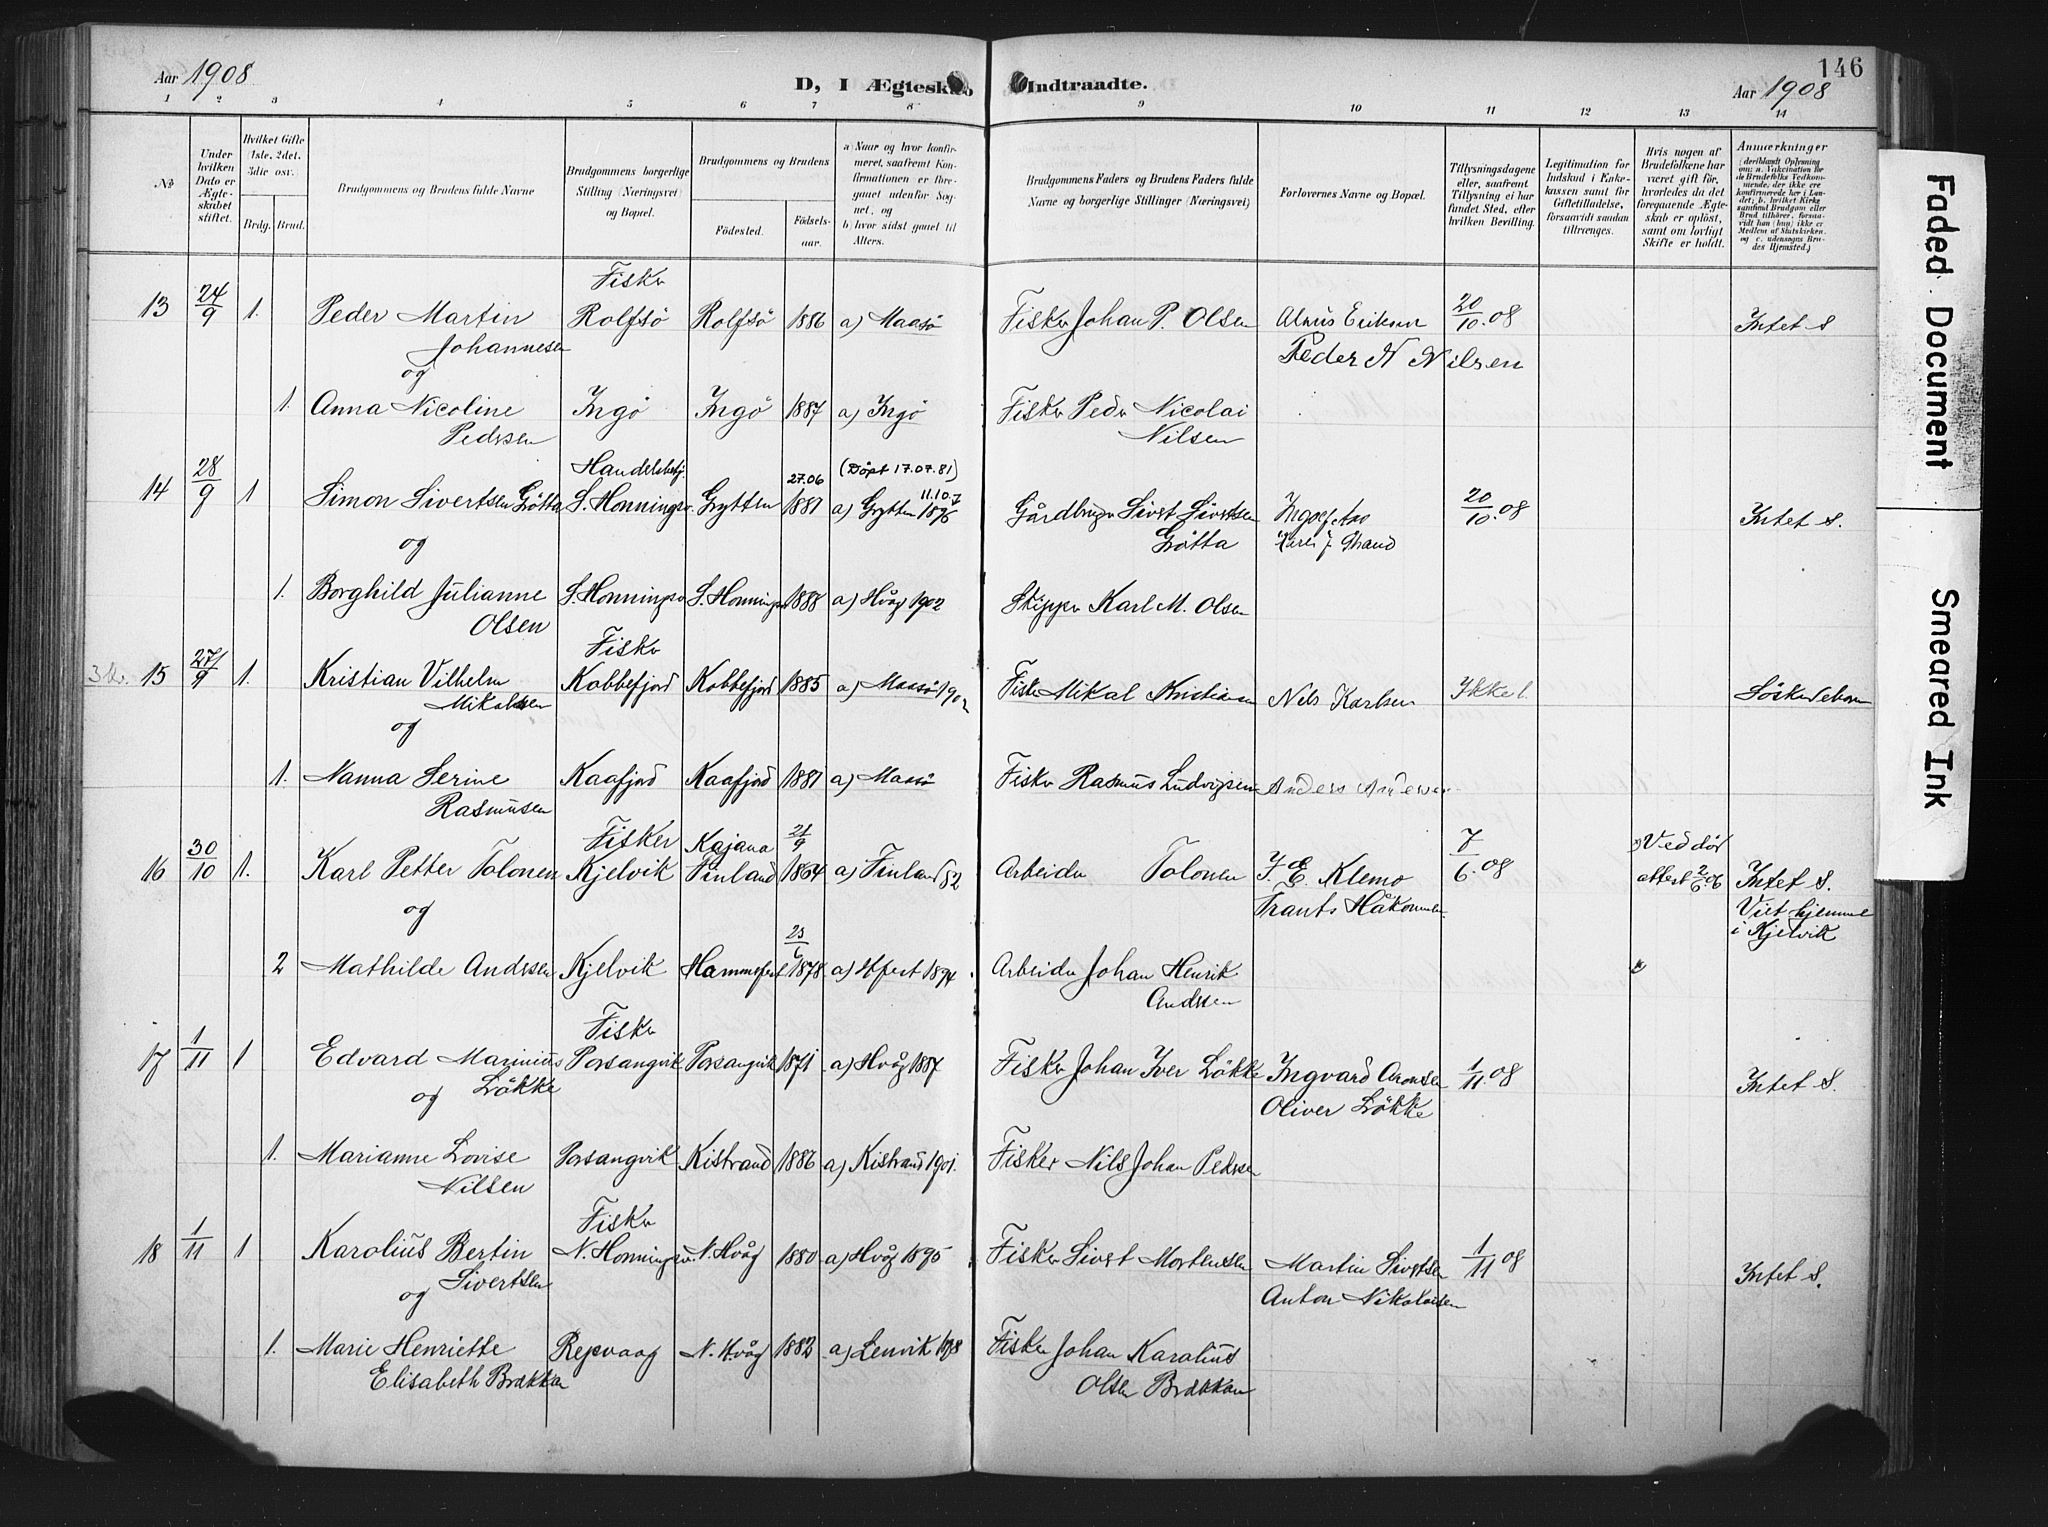 Aar 1908
D, I Ægteskab
Indtraadte.
Aar 1908
146
1 2 3 4 5 6 7 8 9 10 11 12 13 14
No
Under hvilken Dato er Ægteskabet stiftet.
Hvilket Gifte (1ste, 2det, 3die osv.)
Brdg. Brud.
Brudgommens og Brudens fulde Navne
Brudgommens borgerlige Stilling (Næringsvei) og Bopæl.
Brudgommens og Brudens
Fødested.
Fødselsaar.
a) Naar og hvor konfirmeret, saafremt Konfirmationen er foregaaet udenfor Sognet, og
b) hvor sidst gaaet til Alters.
Brudgommens Faders og Brudens Faders fulde Navne og borgerlige Stillinger (Næringsvei)
Forlovernes Navne og Bopæl.
Tillysningsdagene eller, saafremt Tillysning ei har fundet Sted, efter hvilken Bevilling.
Legitimation for Indskud i Enkekassen samt for Giftetilladelse, forsaavidt saadan tiltrænges.
Hvis nogen af Brudefolkene har været gift før, hvorledes da det foregaaende Ægteskab er opløst, samt om lovligt Skifte er holdt.
Anmærkninger
13 24/9 1. Peder Martin Johannesen
Fisker Rolfsö Rolfsö 1886 a) Maasö
Fisker Johan P. Olsen
Peder N Nilsen
20/10.08
Intet S
og
1. Anna Nicoline Pedersen
Ingö Ingö 1887 a) Ingö
Fisker Peder Nicolai Nilsen
14 28/9 1 Simon Sivertsen Grötta
S. Honningsv. Grytten 27.06 1881
(Döpt 17.07.81)
a) Grytten 11.10. 1896
Gårdbruger Sivert Sivertsen Grötta
20/10.08
Intet S.
og
1. Borghild Julianne Olsen
S. Honningsv S. Honningsv 1888 a) Hvåg 1902
Skipper Karl M. Olsen
15 27/9 1. Kristian Vilhelm Mikalsen
Fisker Kobbefjord Kobbefjord 1885 a) Maasö 1902
Fisker Mikal Kristiansen
Nils Karlsen
Ikke l.
Söskendebørn
og
1. Nanna Serine Rasmusen
Kaafjord Kaafjord 1881 a) Maasö
Fisker Rasmus Ludvigsen
Anders Andersen
16 30/10 1. Karl Petter Tolonen
Fisker Kjelvik Kajana Finland 21/9 1864 a) Finland 82
Arbeider Tolonen
I. E. Klemo
Frants Håkonsen
7/6.08
Ved död
attest 2/6 06
Intet S.
Viet hjemme
i Kjelvik
og
2 Mathilde Andersen
Kjelvik Hammerfest 23/6 1878 a) Hfest 1894
Arbeider Johan Henrik Andersen
17 1/11 1 Edvard Marinius Lökke
Fisker Porsangvik Porsangvik 1871 a) Hvåg 1887
Fisker Johan Iver Lökke
Ingvard Aronsen
Oliver Lökke
1/11.08
Intet S.
og
1. Marianne Lovise Nilsen
Porsangvik Kistrand 1886 a) Kistrand 1901.
Fisker Nils Johan Pedersen
18 1/11 1 Karolius Bertin Sivertsen
Fisker N. Honningsv. N. Hvåg 1880 a) Hvåg 1895
Fisker Sivert Mortensen
Martin Sivertsen
Anton Nikolaisen
1/11 08
Intet S.
og
1. Marie Henriette Elisabeth Brækkan
Repvaag N. Hvåg 1882 a) Lenvik 1898
Fisker Johan Karolius Olsen Brækkan
Faded Document
Smeared Ink